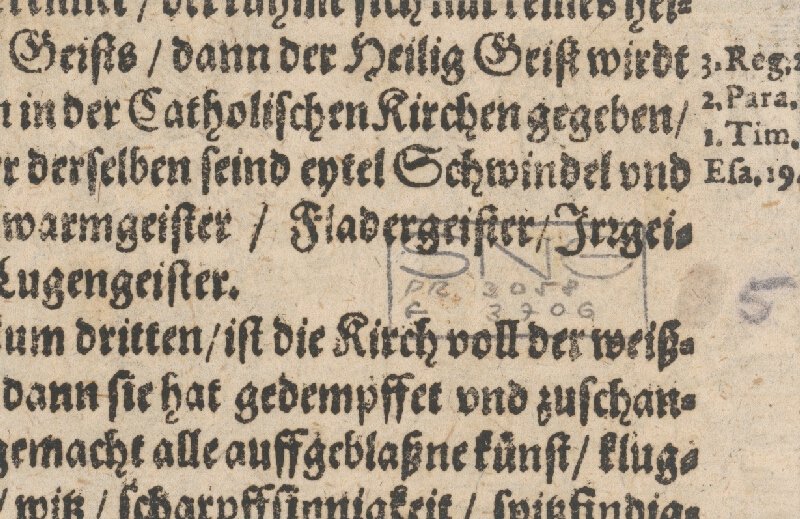 der rühmt sich nur keines hei⸗
Geists / dann der Heilig Geist wirdt
in der Catholischen Kirchen gegeben /
derselben seind eytel Schwindel vnd
warmgeister / Fladergeister / Jrrgei⸗
Lugengeister.
um dritten / ist die Kirch voll der weiß⸗
dann sie hat gedempffet vnd zuschan⸗
gemacht alle auffgeblaßne künst / klug⸗
/ witz / scharpffsinnigkeit / spitzfindig⸗
3. Reg.
2. Para.
1. Tim.
Esa. 19.
SNG
PR 3058
F 3706
5